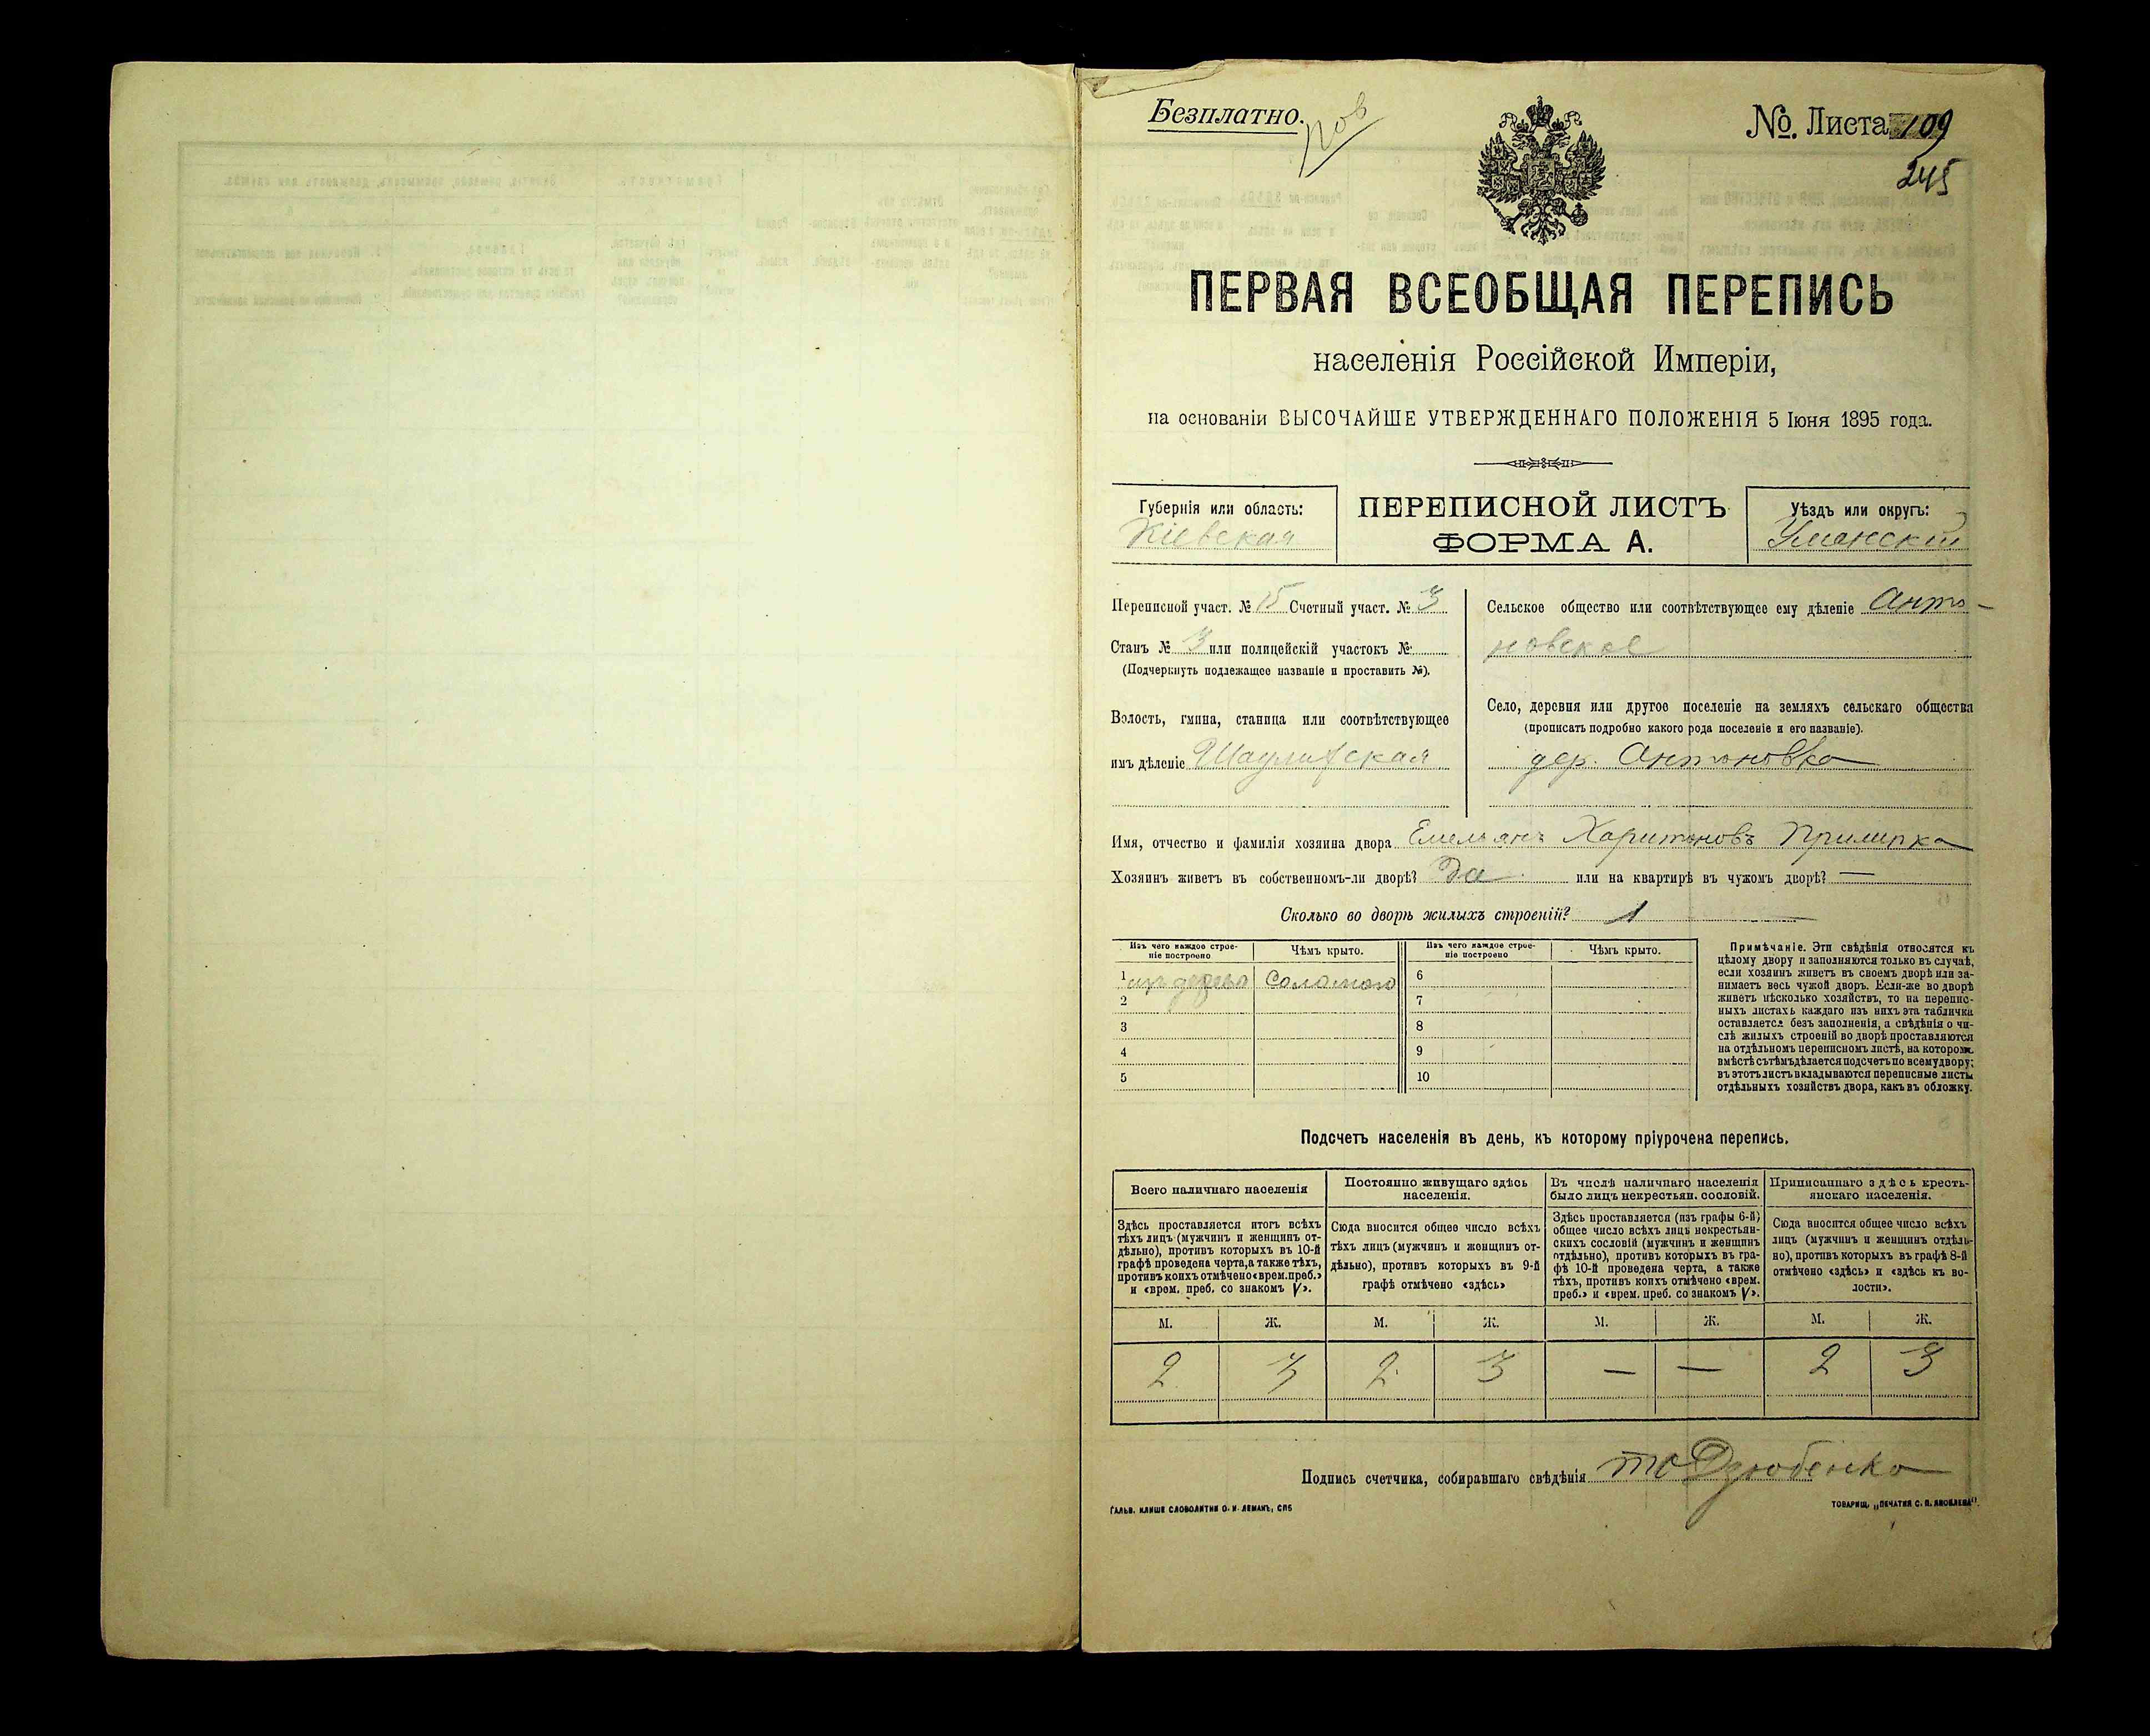 Безплатно.
№. Листа 109
245
ПЕРВАЯ ВСЕОБЩАЯ ПЕРЕПИСЬ
населенія Россійской Имперіи,
на основаніи ВЫСОЧАЙШЕ УТВЕРЖДЕННАГО ПОЛОЖЕНІЯ 5 Іюня 1895 года.
Губернія или область:
Кіевская
ПЕРЕПИСНОЙ ЛИСТЪ
ФОРМА А.
Уѣздъ или округъ:
Уманскій
Переписной участ. № 15 Счетный участ. № 3
Станъ № 3 или полицейскій участокъ №
(Подчеркнуть подлежащее названіе и проставить №).
Волость, гмина, станица или соотвѣтствующее
имъ дѣленіе
Сельское общество или соотвѣтствующее ему дѣленіе Анто-
новское
Село, деревня или другое поселеніе на земляхъ сельскаго общества
(прописать подробно какого рода поселеніе и его названіе).
дер. Антоновка
Имя, отчество и фамилія хозяина двора Емельянъ Харитоновъ
Хозяинъ живетъ въ собственномъ-ли дворѣ? Да или на квартирѣ въ чужомъ дворѣ? —
Сколько во дворѣ жилыхъ строеній? 1
Изъ чего каждое строе-
ніе построено
Чѣмъ крыто.
Изъ чего каждое строе-
ніе построено
Чѣмъ крыто.
1 изъ дерева Соломою 6
2 7
3 8
4 9
5 10
Примѣчаніе. Эти свѣдѣнія относятся къ
цѣлому двору и заполняются только въ случаѣ,
если хозяинъ живетъ въ своемъ дворѣ или за-
нимаетъ весь чужой дворъ. Если-же во дворѣ
живетъ нѣсколько хозяйствъ, то на перепис-
ныхъ листахъ каждаго изъ нихъ эта табличка
оставляется безъ заполненія, а свѣдѣнія о чи-
слѣ жилыхъ строеній во дворѣ проставляются
на отдѣльномъ переписномъ листѣ, на которомъ
вмѣстѣ съ тѣмъ дѣлается подсчетъ по всему двору;
въ этотъ листъ вкладываются переписные листы
отдѣльныхъ хозяйствъ двора, какъ въ обложку.
Подсчетъ населенія въ день, къ которому пріурочена перепись.
Всего наличнаго населенія
Здѣсь проставляется итогъ всѣхъ
тѣхъ лицъ (мужчинъ и женщинъ от-
дѣльно), противъ которыхъ въ 10-й
графѣ проведена черта, а также тѣхъ,
противъ коихъ отмѣчено «врем. преб.»
и «врем. преб. со знакомъ V».
Постоянно живущаго здѣсь
населенія.
Сюда вносится общее число всѣхъ
тѣхъ лицъ (мужчинъ и женщинъ от-
дѣльно), противъ которыхъ въ 9-й
графѣ отмѣчено «здѣсь»
Въ числѣ наличнаго населенія
было лицъ некрестьян. сословій.
Здѣсь проставляется (изъ графы 6-й)
общее число всѣхъ лицъ некрестьян-
скихъ сословій (мужчинъ и женщинъ
отдѣльно), противъ которыхъ въ гра-
фѣ 10-й проведена черта, а также
тѣхъ, противъ коихъ отмѣчено «врем.
преб.» и «врем. преб. со знакомъ V».
Приписаннаго здѣсь кресть-
янскаго населенія.
Сюда вносится общее число всѣхъ
лицъ (мужчинъ и женщинъ отдѣль-
но), противъ которыхъ въ графѣ 8-й
отмѣчено «здѣсь» и «здѣсь къ во-
лости».
М. Ж. М. Ж. М. Ж. М. Ж.
2 3 2 3 — — 2 3
Подпись счетчика, собиравшаго свѣдѣнія Дзюбенко
ГАЛЬВ. КЛИШЕ СЛОВОЛИТНИ О. И. ЛЕМАНЪ, СПБ
ТОВАРИЩ. „ПЕЧАТНЯ С. П. ЯКОВЛЕВА".